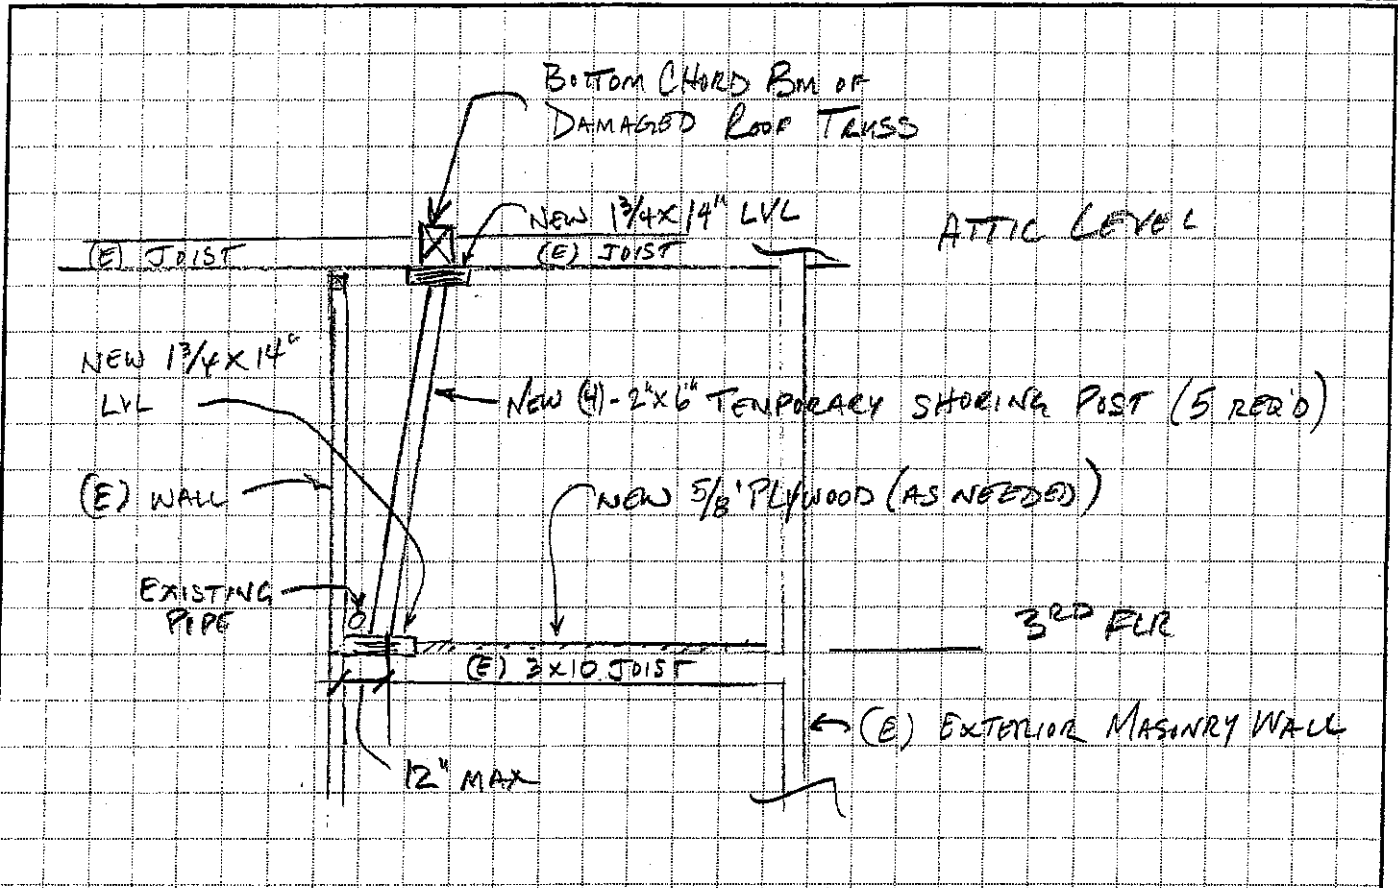 BOTTOM CHORD BM OF
DAMAGED ROOF TRUSS
NEW 1 3/4 X 14" LVL
ATTIC LEVEL
(E) JOIST
(E) JOIST
NEW 1 3/4 X 14"
LVL
NEW (4)-2"X6" TEMPORARY SHORING POST (5 REQ'D)
(E) WALL
NEW 5/8" PLYWOOD (AS NEEDED)
EXISTING
PIPE
3RD FLR
(E) 3X10 JOIST
(E) EXTERIOR MASONRY WALL
12" MAX